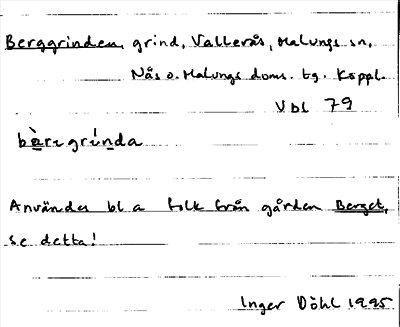 Berggrinden, grind, Vallerås, Malungs sn,
Nås o. Malungs doms. tg. Koppl.
Vbl 79
bàrɩgrínda
Användes bl a folk från gården Berget,
se detta!
Inger Döhl 1995